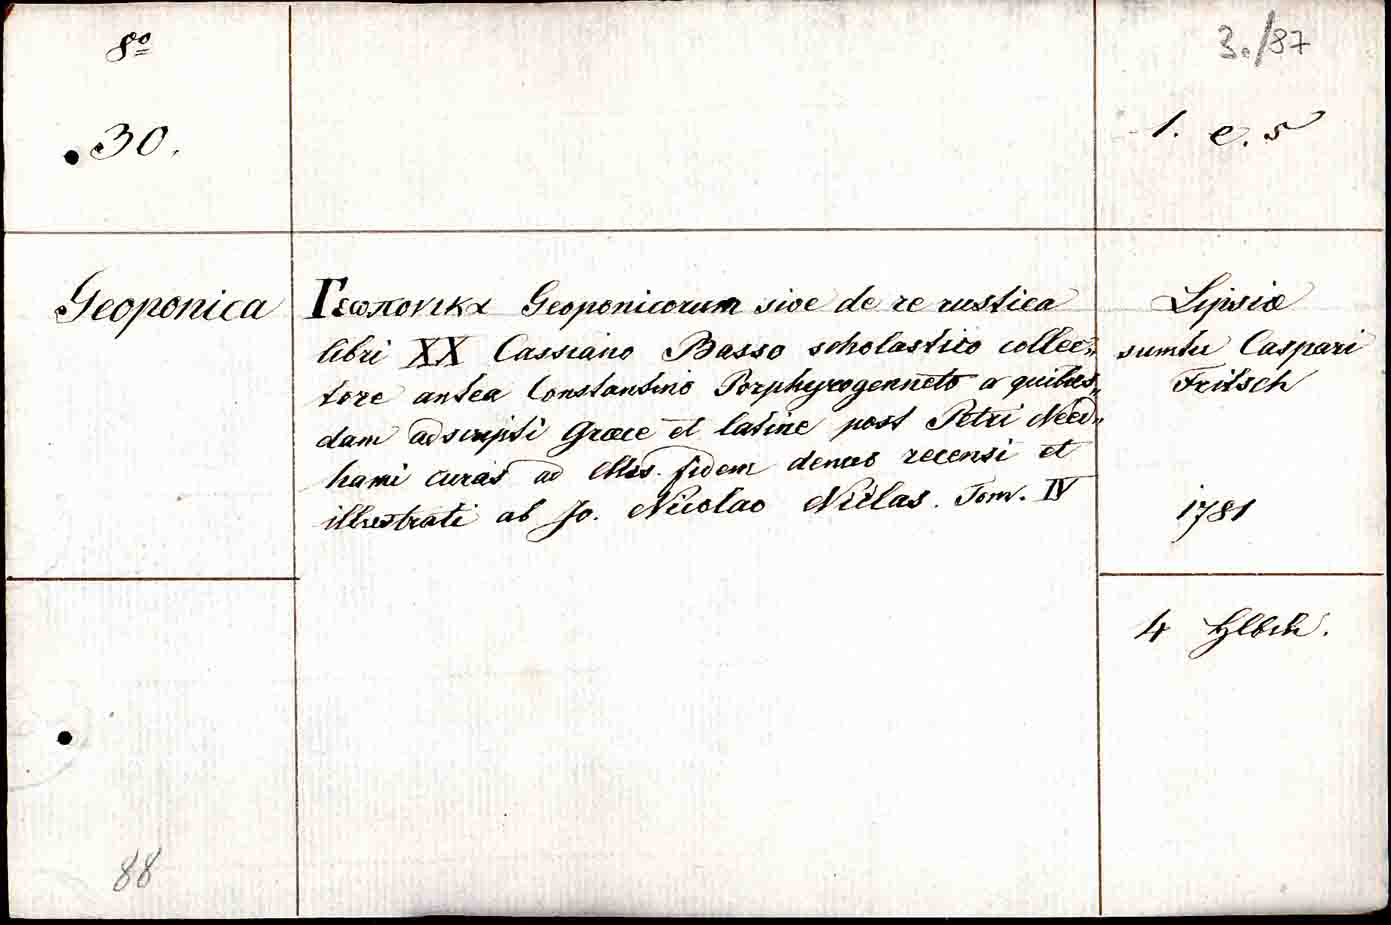 8o
3./87
30.
1. e. 5
Geoponica
Γεωπονικα Geoponicorum sive de re rustica
libri XX Cassiano Basso scholastico collec„
tore antea Constantino Porphyrogenneto a quibus„
dam adscripti Græce et latine post Petri Need„
hami curas ad Mss. fidem denuo recensi et
illustrati ab Jo. Nicolao Niclas. Tom. IV
Lipsiæ
sumtu Caspari
Fritsch
1781
4 Hlbch.
88